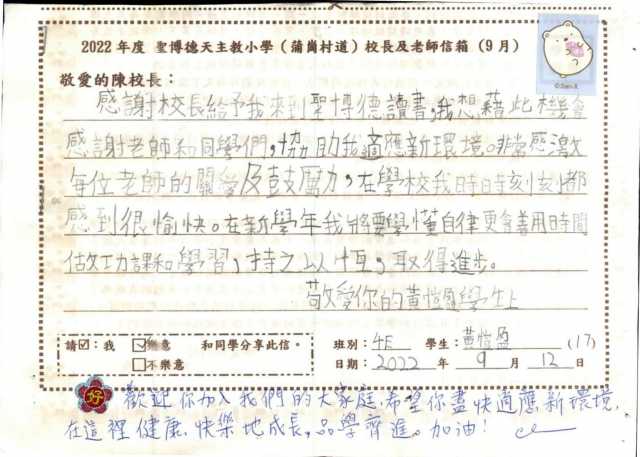 2022 年度 聖博德天主教小學（蒲崗村道）校長及老師信箱（9月）
敬愛的陳校長：
感謝校長給予我來到聖博德讀書，我想藉此機會
感謝老師和同學們，協助我適應新環境。非常感激
每位老師的關愛及鼓勵，在學校我時時刻刻都
感到很愉快。在新學年我將要學懂自律更會善用時間
做功課和學習，持之以恆，取得進步。
敬愛你的黃愷盈學生上
請☑：我 ☑樂意 和同學分享此信。
□不樂意
班別：4E 學生：黃愷盈 (17)
日期：2022 年 9 月 12 日
好
歡迎你加入我們的大家庭，希望你盡快適應新環境，
在這裡健康、快樂地成長，品學齊進。加油！